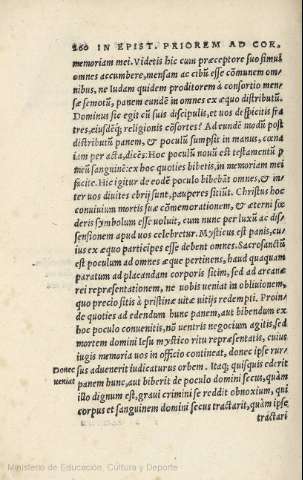 260 IN EPIST. PRIOREM AD COR.
memoriam mei. Videtis hic cum præceptore suo simul
omnes accumbere, mensam ac cibū esse cōmunem om-
nibus, ne Iudam quidem proditorem à consortio men-
sæ semotū, panem eundē in omnes ex æquo distributū.
Dominus sic egit cū suis discipulis, et uos despicitis fra
tres, eiusdēq; religionis cōsortes? Ad eundē modū post
distributū panem, & poculū sumpsit in manus, cœna
iam peracta, dicēs: Hoc poculū nouū est testamentū p
meū sanguinē: ex hoc quoties bibetis, in memoriam mei
facite. Hic igitur de eodē poculo bibebāt omnes, & in-
ter uos diuites ebrij sunt, pauperes sitiūt. Christus hoc
conuiuium mortis suæ cōmemorationem, & æterni fœ
deris symbolum esse uoluit, eum nunc per luxū ac dis-
sensionem apud uos celebretur. Mysticus est panis, cu-
ius ex æquo participes esse debent omnes. Sacrosanctū
est poculum ad omnes æque pertinens, haud quaquam
paratum ad placandam corporis sitim, sed ad arcanæ
rei repræsentationem, ne uobis ueniat in obliuionem,
quo precio sitis à pristinæ uitæ uitijs redempti. Proin-
de quoties ad edendum hunc panem, aut bibendum ex
hoc poculo conuenitis, nō uentris negocium agitis, sed
mortem domini Iesu mystico ritu repræsentatis, cuius
iugis memoria uos in officio contineat, donec ipse rur-
Donec
ueniat
sus aduenerit iudicaturus orbem. Itaq; quisquis ederit
panem hunc, aut biberit de poculo domini secus, quàm
illo dignum est, graui crimini se reddit obnoxium, qui
corpus et sanguinem domini secus tractarit, quàm ipse
tractari
Ministerio de Educación, Cultura y Deporte